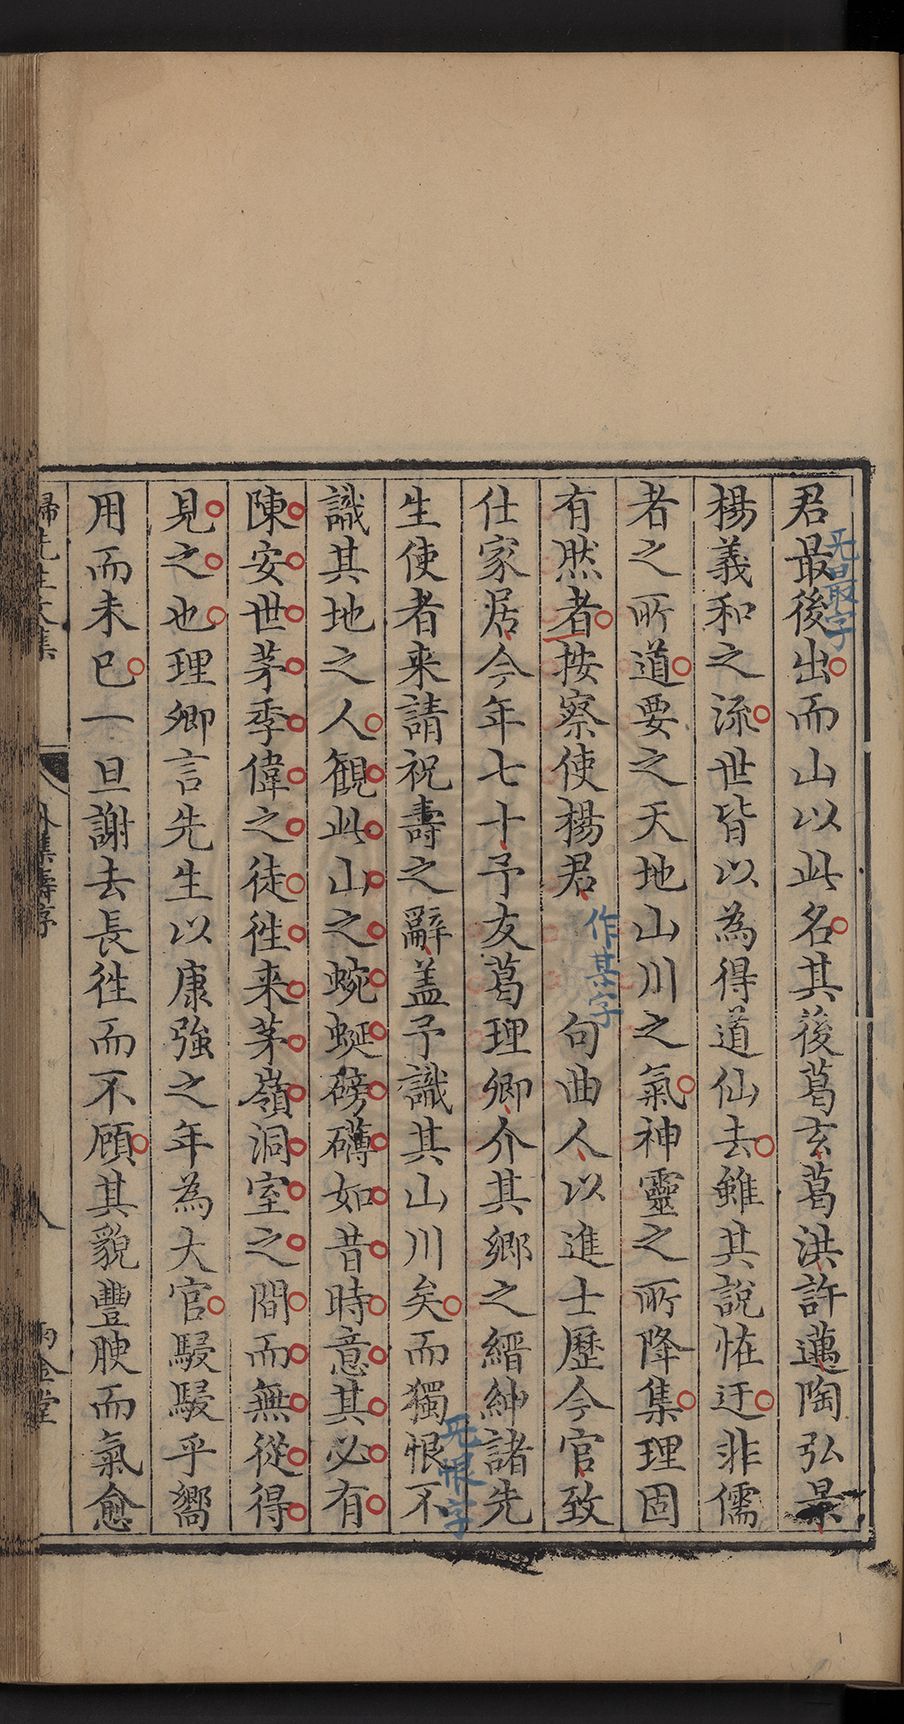 君最後出而山以此名其後葛玄葛洪許邁陶弘景
无最字
楊義和之流世皆以為得道仙去雖其說恠迂非儒
者之所道要之天地山川之氣神靈之所降集理固
有然者按察使楊君句曲人以進士歷今官致
作某字
仕家居今年七十予友葛理卿介其鄉之縉紳諸先
生使者来請祝壽之辭葢予識其山川矣而獨恨不
无恨字
識其地之人觀此山之蜿蜒磅礴如昔時意其必有
陳安世茅季偉之徒徃来茅嶺洞室之間而無從得
見之也理卿言先生以康強之年為大官駸駸乎嚮
用而未已一旦謝去長徃而不顧其貌豐腴而氣愈
歸先生文集
外集壽序
八
雨金堂